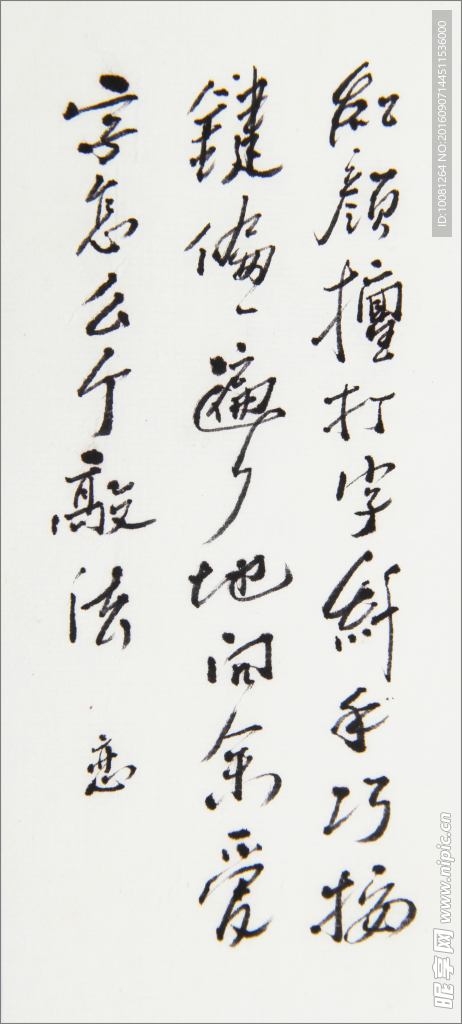 红颜擅打字纤手巧按
鍵偏々遍々地问余爱
字怎么个敲法 恋
ID:10081264 NO:20160907144511536000
昵享网 www.nipic.cn